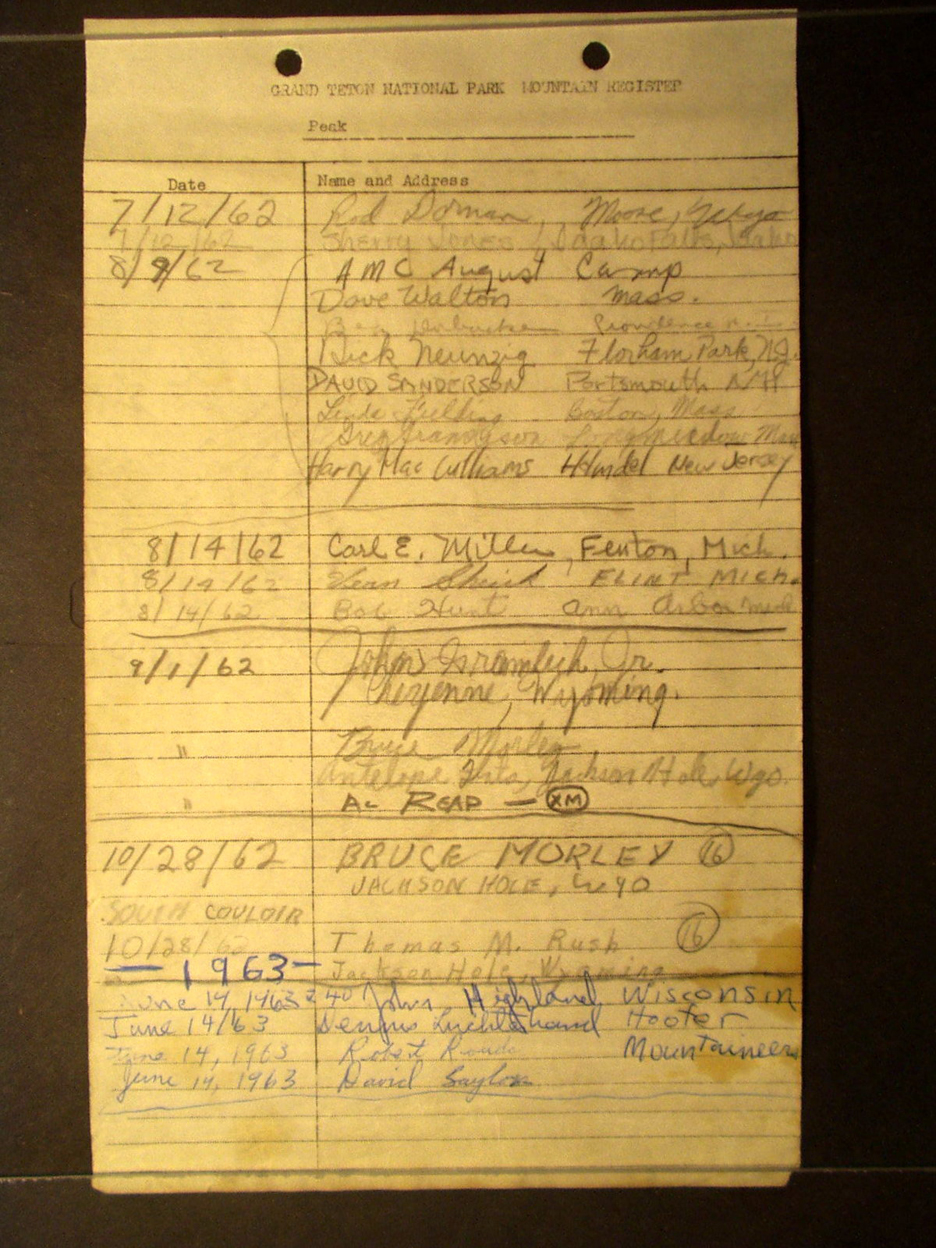 GRAND TETON NATIONAL PARK MOUNTAIN REGISTER
Peak
Date Name and Address
7/12/62 Rod Dorman, Moore, Idaho
7/12/62 Sherry Jones, Idaho Falls, Idaho
8/9/62 AMC August Camp
Dave Walton Mass.
Providence R.I.
Dick Neunzig Florham Park, NJ.
DAVID SANDERSON Portsmouth NH
Linda Fielding Boston, Mass
Longmeadow Mass
Harry Mac Williams New Jersey
8/14/62 Carl E. Miller, Fenton, Mich.
8/14/62 FLINT MICH.
8/14/62 Bob Hunt Ann Arbor Mich
9/1/62 John Gramlich, Jr.
Cheyenne, Wyoming.
" Bruce Morley
Antelope Flats, Jackson Hole, Wyo.
" AL READ — XM
10/28/62 BRUCE MORLEY 16
JACKSON HOLE, WYO
SOUTH COULOIR
10/28/62 Thomas M. Rush 16
— 1963 — Jackson Hole, Wyoming
June 14, 1963 2:40 John Highland, Wisconsin
June 14/63 Dennis Hoofer
June 14, 1963 Robert Mountaineers
June 14, 1963 David Saylor